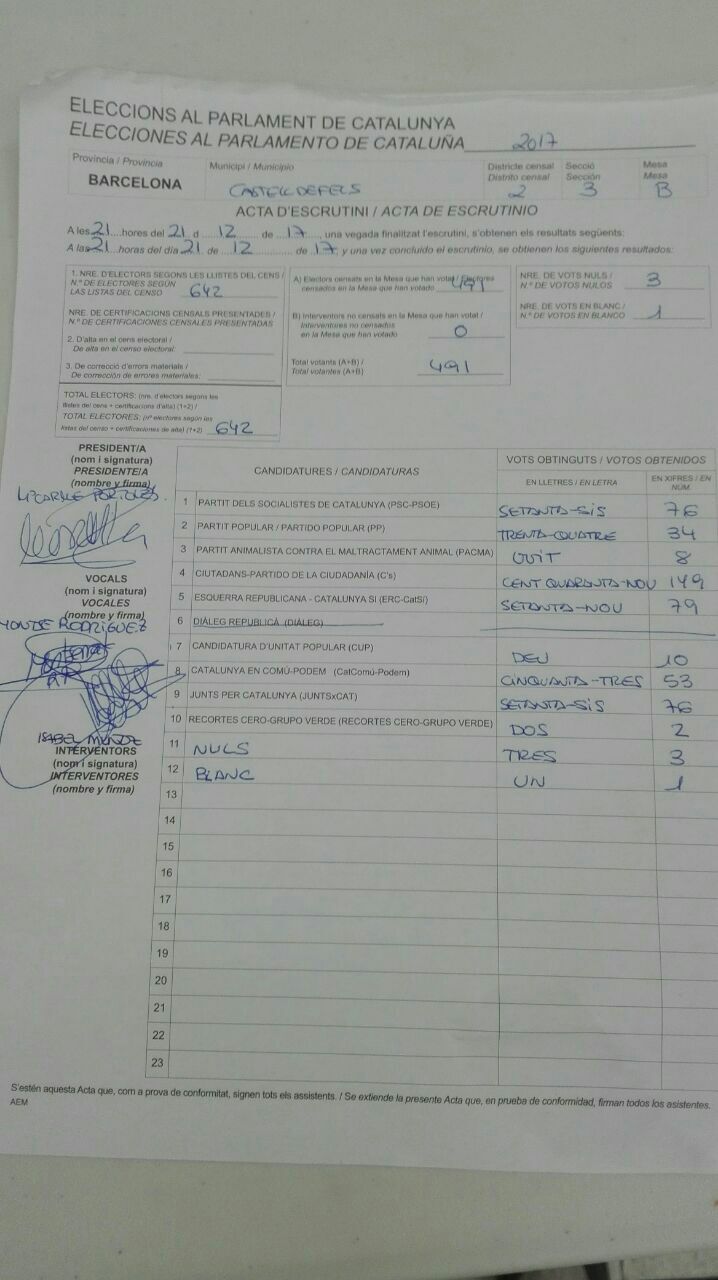 ELECCIONS AL PARLAMENT DE CATALUNYA
ELECCIONES AL PARLAMENTO DE CATALUÑA 2017
Provincia / Provincia
BARCELONA
Municipi / Municipio
CASTELLDEFELS
Districte censal
Distrito censal
2
Secció
Sección
3
Mesa
Mesa
B
ACTA D'ESCRUTINI / ACTA DE ESCRUTINIO
A les 21 hores del 21 d 12 de 17, una vegada finalitzat l'escrutini, s'obtenen els resultats següents:
A las 21 horas del día 21 de 12 de 17, y una vez concluido el escrutinio, se obtienen los siguientes resultados:
1. NRE. D'ELECTORS SEGONS LES LLISTES DEL CENS /
N.º DE ELECTORES SEGÚN
LAS LISTAS DEL CENSO 642
NRE. DE CERTIFICACIONS CENSALS PRESENTADES /
N.º DE CERTIFICACIONES CENSALES PRESENTADAS
2. D'alta en el cens electoral /
De alta en el censo electoral:
3. De correcció d'errors materials /
De corrección de errores materiales:
TOTAL ELECTORS: (nre. d'electors segons les
llistes del cens + certificacions d'alta) (1+2) /
TOTAL ELECTORES: (nº electores según las
listas del censo + certificaciones de alta) (1+2) 642
A) Electors censats en la Mesa que han votat / Electores
censados en la Mesa que han votado 491
B) Interventors no censats en la Mesa que han votat /
Interventores no censados
en la Mesa que han votado 0
Total votants (A+B) /
Total votantes (A+B) 491
NRE. DE VOTS NULS /
N.º DE VOTOS NULOS 3
NRE. DE VOTS EN BLANC /
N.º DE VOTOS EN BLANCO 1
PRESIDENT/A
(nom i signatura)
PRESIDENTE/A
(nombre y firma)
VOCALS
(nom i signatura)
VOCALES
(nombre y firma)
MONTSE RODRÍGUEZ
ISABEL
INTERVENTORS
(nom i signatura)
INTERVENTORES
(nombre y firma)
CANDIDATURES / CANDIDATURAS
VOTS OBTINGUTS / VOTOS OBTENIDOS
EN LLETRES / EN LETRA
EN XIFRES / EN NÚM.
1 PARTIT DELS SOCIALISTES DE CATALUNYA (PSC-PSOE) SETANTA-SIS 76
2 PARTIT POPULAR / PARTIDO POPULAR (PP) TRENTA-QUATRE 34
3 PARTIT ANIMALISTA CONTRA EL MALTRACTAMENT ANIMAL (PACMA) VUIT 8
4 CIUTADANS-PARTIDO DE LA CIUDADANÍA (C's) CENT QUARANTA-NOU 149
5 ESQUERRA REPUBLICANA - CATALUNYA SÍ (ERC-CatSí) SETANTA-NOU 79
6 DIÀLEG REPUBLICÀ (DIÀLEG)
7 CANDIDATURA D'UNITAT POPULAR (CUP) DEU 10
8 CATALUNYA EN COMÚ-PODEM (CatComú-Podem) CINQUANTA-TRES 53
9 JUNTS PER CATALUNYA (JUNTSxCAT) SETANTA-SIS 76
10 RECORTES CERO-GRUPO VERDE (RECORTES CERO-GRUPO VERDE) DOS 2
11 NULS TRES 3
12 BLANC UN 1
13
14
15
16
17
18
19
20
21
22
23
S'estén aquesta Acta que, com a prova de conformitat, signen tots els assistents. / Se extiende la presente Acta que, en prueba de conformidad, firman todos los asistentes.
AEM